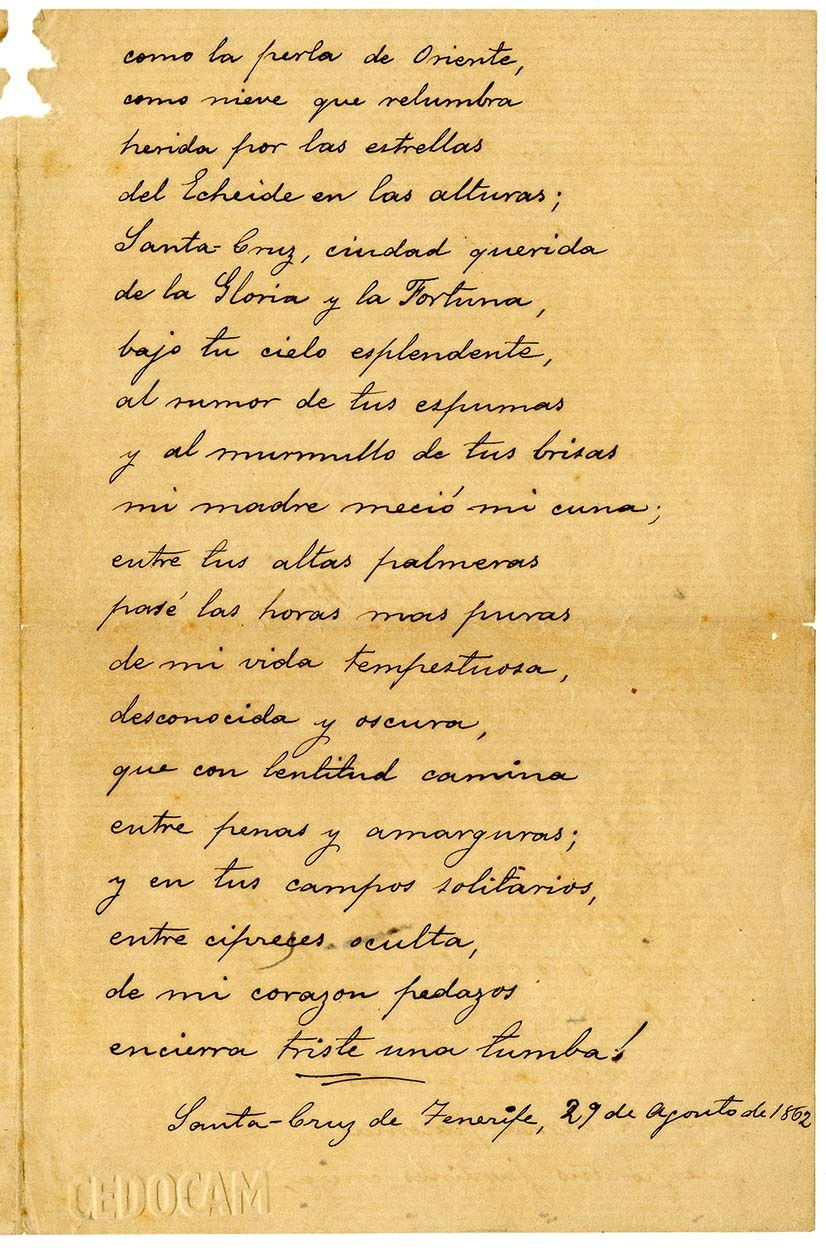 como la perla de Oriente,
como nieve que relumbra
herida por las estrellas
del Echeide en las alturas;
Santa-Cruz, ciudad querida
de la Gloria y la Fortuna,
bajo tu cielo esplendente,
al rumor de tus espumas
y al murmullo de tus brisas
mi madre meció mi cuna;
entre tus altas palmeras
pasé las horas mas puras
de mi vida tempestuosa,
desconocida y oscura,
que con lentitud camina
entre penas y amarguras;
y en tus campos solitarios,
entre cipreces oculta,
de mi corazon pedazos
encierra triste una tumba!
Santa-Cruz de Tenerife, 29 de Agosto de 1862
CEDOCAM